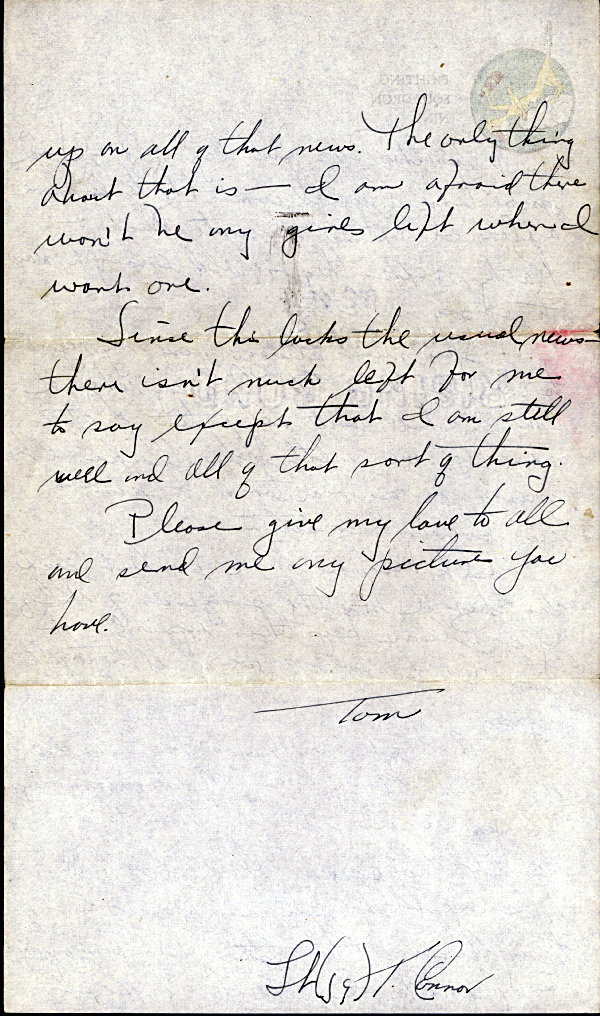 up on all of that news. The only thing
about that is — I am afraid there
won't be any girls left when I
want one.
Since this lacks the usual news —
there isn't much left for me
to say except that I am still
well and all of that sort of thing.
Please give my love to all
and send me any pictures you
have.
— Tom
Lt (jg) T. Connor